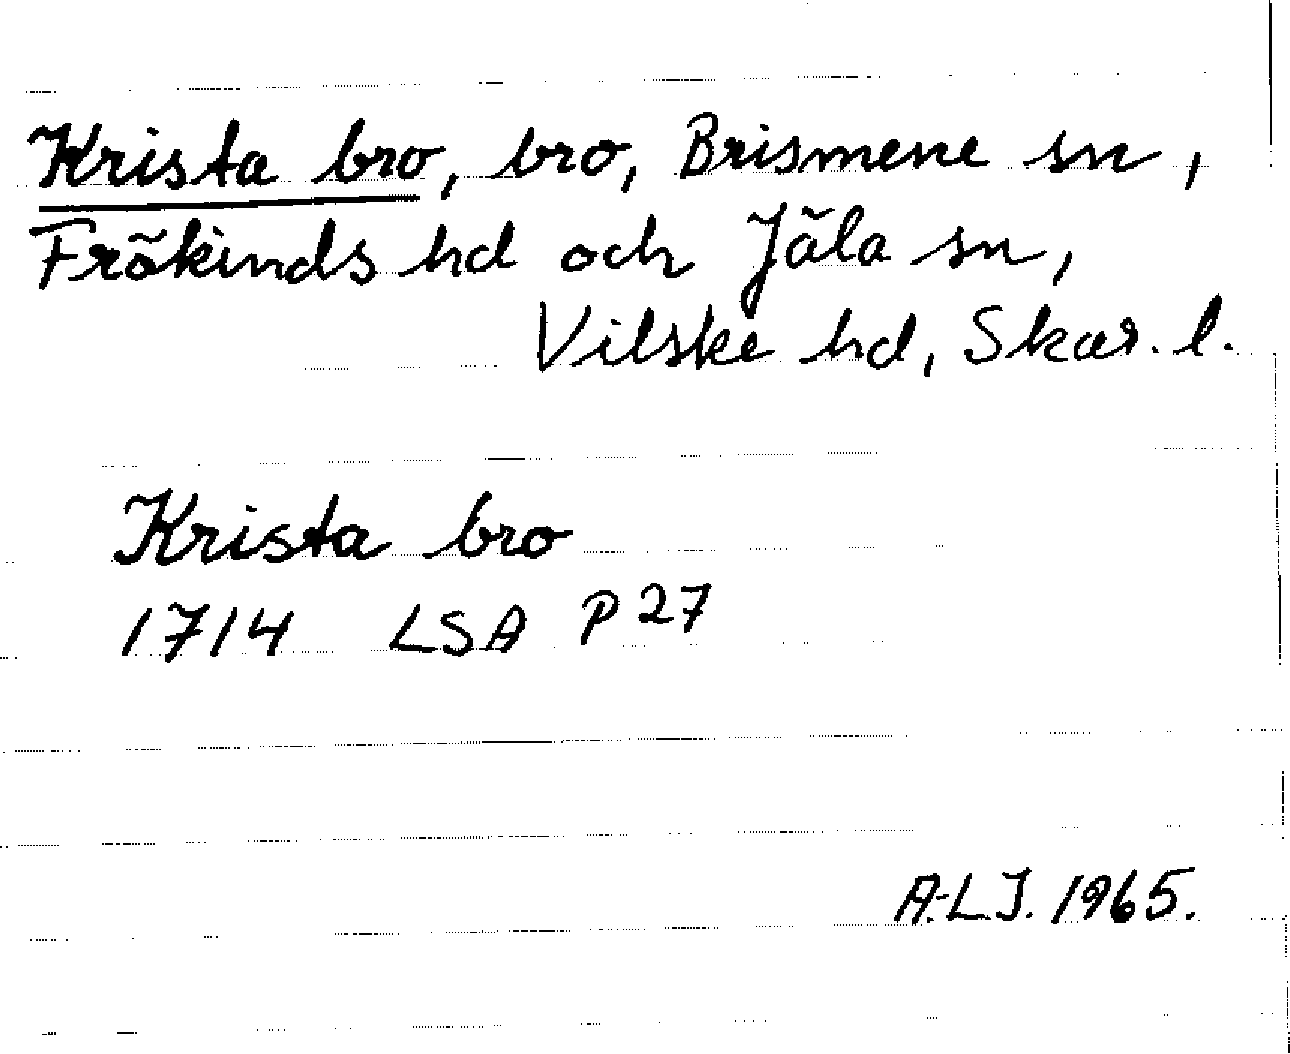 Krista bro, bro, Brismene sn,
Frökinds hd och Jäla sn,
Vilske hd, Skar. l.
Krista bro
1714 LSA P 27
A.-L.J. 1965.